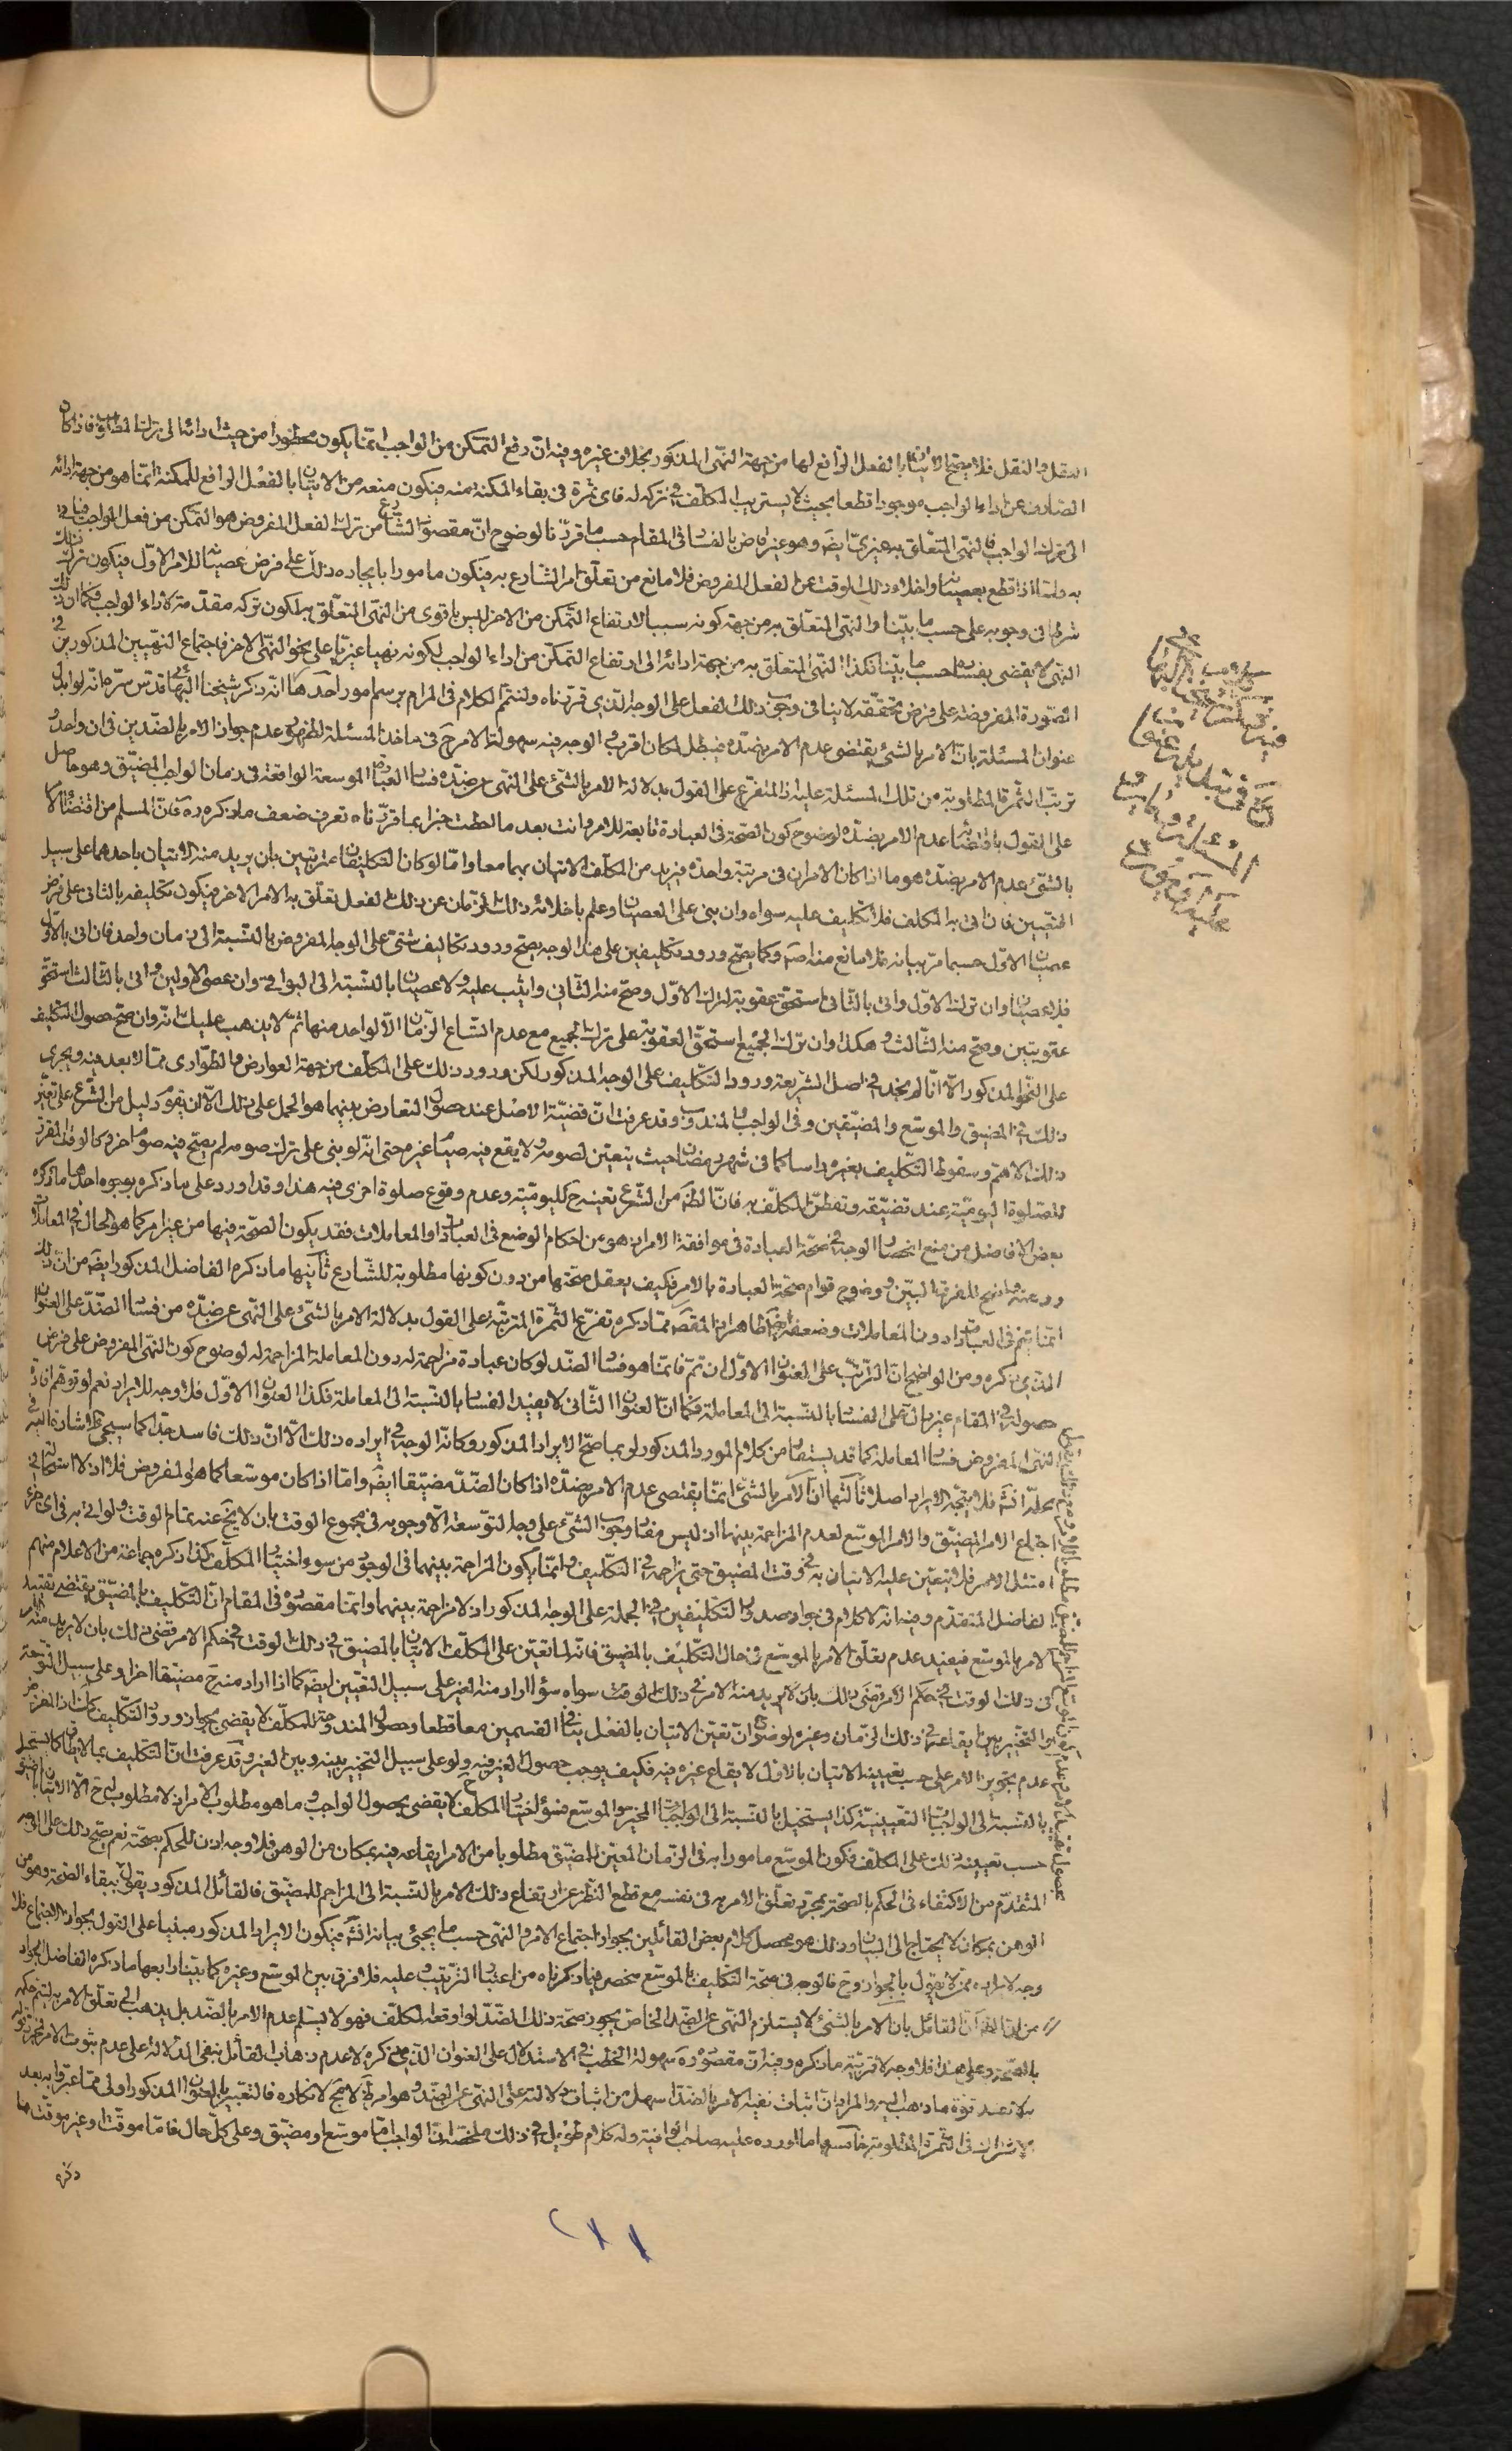 العقل والنقل فلا يصح الاتيان بالفعل الرافع لها من جهة النهى المذكور بخلاف غيره وفيه ان رفع التمكن من الواجب انما يكون محظورا من حيث ادائه الى ترك المطلوب فاذا كان
الصارف عن اداء الواجب موجودا قطعا بحيث لا يستريب المكلف في تركه له فاى ثمرة فى بقاء المكنة منه فيكون منعه من الاتيان بالفعل الرافع للمكنة انما هو من جهة ادائه
الى ترك الواجب فالنهى المتعلق به غيرى ايضا وهو غير قاض بالفساد فى المقام حسب ما قررنا لوضوح ان مقصود الشارع من ترك الفعل المفروض هو التمكن من فعل الواجب
به ولذا اذا قطع بعصيانه واخلاء ذلك الوقت عن الفعل المفروض فلا مانع من تعلق امر الشارع به فيكون مامورا بايجاده ذلك على فرض عصيانه للامر الاول فيكون ترك ذلك
شرطا فى وجوبه على حسب ما بينا والنهى المتعلق به من جهة كونه سببا لارتفاع التمكن من الاخر ليس باقوى من النهى المتعلق به لكون تركه مقدمة لاداء الواجب فكما ان ذلك
النهى لا يقضى بفساده حسب ما بينا فكذا النهى المتعلق به من جهة ادائه الى ارتفاع التمكن من اداء الواجب لكونه نهيا غيريا على نحو النهى الاخر فاجتماع النهيين المذكورين فى
الصورة المفروضة على فرض تحققه لا ينافى وجوب ذلك الفعل على الوجه الذى قررناه ولنتمم الكلام فى المرام برسم امور احدها انه ذكر شيخنا البهائى قدس سره انه لو ابدل
عنوان المسئلة بان الامر بالشئ يقتضى عدم الامر بضده فيبطل لكان اقرب والوجه فيه سهولة الامر ح فى ماخذ المسئلة لظهور عدم جواز الامر بالضدين فى ان واحد
ترتب الثمرة المطلوبة من تلك المسئلة عليه اذ المتفرع على القول بدلالة الامر بالشئ على النهى عن ضده فساد العبادة الموسعة الواقعة فى زمان الواجب المضيق وهو حاصل
على القول باقتضائه عدم الامر بضده لوضوح كون الصحة فى العبادة تابعة للامر وانت بعد ما احطت خبرا بما قررناه تعرف ضعف ما ذكره ره فان المسلم من اقتضاء الامر
بالشئ عدم الامر بضده هو ما اذا كان الامران فى مرتبة واحدة فيريد من المكلف الاتيان بهما معا واما لو كان التكليفان مترتبين بان يريد منه الاتيان باحدهما على سبيل
التعيين فان اتى به المكلف فلا تكليف عليه سواه وان بنى على العصيان وعلم باخلائه ذلك الزمان عن ذلك الفعل تعلق به الامر الاخر فيكون تكليفه بالثانى على فرض
عصيان الاول حسبما مر بيانه فلا مانع منه اصلا وكما يصح ورود تكليفين على هذا الوجه يصح ورود تكاليف شتى على الوجه المفروض بالنسبة الى زمان واحد فان اتى بالاول
فلا عصيان وان ترك الاول واتى بالثانى استحق عقوبة لترك الاول وصح منه الثانى واثيب عليه ولا عصيان بالنسبة الى البواقى وان عصى الاولين واتى بالثالث استحق
عقوبتين وصح منه الثالث وهكذا وان ترك الجميع استحق العقوبة على ترك الجميع مع عدم اتساع الزمان الا لواحد منها ثم لا يذهب عليك انه وان صح حصول التكليف
على النحو المذكور الا انا لم نجد فى اصل الشريعة ورود التكليف على الوجه المذكور لكن ورود ذلك على المكلف من جهة العوارض والطوارى مما لا بعد فيه ويجرى
ذلك فى المضيق والموسع والمضيقين وفى الواجب والمندوب وقد عرفت ان قضية الاصل عند حصول التعارض بينهما هو الحمل على ذلك الا ان يقوم دليل من الشرع على تعين
ذلك الاهم وسقوط التكليف بغيره راسا كما فى شهر رمضان حيث يتعين لصومه ولا يقع فيه صيام غيره حتى انه لو بنى على ترك صومه لم يصح فيه صوم اخر وكالوقت المقرر
للصلوة اليومية عند تضيقه وتفطن المكلف به فان الظ من الشرع تعينه ح لليومية وعدم وقوع صلوة اخرى فيه هذا وقد اورد على ما ذكره بوجوه احدها ما ذكره
بعض الافاضل من منع انحصار الوجه فى صحة العبادة فى موافقة الامر اذ هو من احكام الوضع فى العبادات او المعاملات فقد يكون الصحة فيها من غير امر كما هو الحال فى المعاملات
وضعفه واضح للفرق البين ووضوح قوام صحة العبادة بالامر فكيف يعقل صحتها من دون كونها مطلوبة للشارع ثانيها ما ذكره الفاضل المذكور ايضا من ان ذلك
انما يتم فى العبادات دون المعاملات وضعفه ايضا ظاهر اذ المقصود مما ذكره تفرع الثمرة المترتبة على القول بدلالة الامر بالشئ على النهى عن ضده من فساد الضد على العنوان
الذى ذكره ومن الواضح ان المترتب على العنوان الاول ان تم فانما هو فساد الضد لو كان عبادة مزاحمة له دون المعاملة المزاحمة له لوضوح كون النهى المفروض على فرض
حصوله فى المقام غير دال على الفساد بالنسبة الى المعاملة فكما ان العنوان الثانى لا يفيد الفساد بالنسبة الى المعاملة فكذا العنوان الاول فلا وجه للايراد نعم لو توهم افادة
النهى المفروض فساد المعاملة كما قد يستفاد من كلام المورد المذكور لربما صح الايراد المذكور وكانه الوجه فى ايراده ذلك الا ان ذلك فاسد جدا كما سيجئ الاشارة اليه فى
محله انش فلا يتجه الايراد اصلا ثالثها ان الامر بالشئ انما يقتضى عدم الامر بضده اذا كان الضد مضيقا ايضا واما اذا كان موسعا كما هو المفروض فلا اذ لا استحالة فى
اجتماع الامر المضيق والامر الموسع لعدم المزاحمة بينهما اذ ليس مفاد وجوب الشئ على وجه التوسعة الا وجوبه فى مجموع الوقت بان لا يخلى عنه تمام الوقت ولو اتى به فى اى جزء
امتثل الامر فلا يتعين عليه الاتيان به فى وقت المضيق حتى يزاحمه فى التكليف وانما يكون المزاحمة بينهما فى الوجود من سوء اختيار المكلف كذا ذكره جماعة من الاعلام منهم
الفاضل المتقدم وفيه انه لا كلام فى جواز صدور التكليفين فى الجملة على الوجه المذكور اذ لا مزاحمة بينهما وانما مقصوده فى المقام ان التكليف بالمضيق يقتضى تقييد
الامر بالموسع فيفيد عدم تعلق الامر بالموسع فى حال التكليف بالمضيق فانه لما تعين على المكلف الاتيان بالمضيق فى ذلك الوقت فى حكم الامر قضى ذلك بان لا يريد منه الامر
فى ذلك الوقت سواه سواء اراد منه الغير على سبيل التعيين ايضا كما اذا اراد منه ح مضيقا اخر او على سبيل التوسعة
او التخيير بين ايقاعه فى ذلك الزمان وغيره لوضوح ان تعين الاتيان بالفعل ينافى القسمين معا قطعا وحصول المندوحة للمكلف لا يقضى بجواز ورود التكليف كذلك اذ المفروض
عدم تجويز الامر على حسب تعيينه الاتيان بالاول لايقاع غيره فيه فكيف يوجب حصول الغير فيه ولو على سبيل التخيير بينه وبين الغير وقد عرفت ان التكليف بما لا يطاق كما يستحيل
بالنسبة الى الواجبات التعيينية كذا يستحيل بالنسبة الى الواجبات المخيرة والموسع فسوء اختيار المكلف ح لا يقضى بحصول الواجب وما هو مطلوب الامر اذ لا مطلوب له ح الا الاتيان بالمضيق
حسب تعيينه ذلك على المكلف فكون الموسع مامورا به فى الزمان المعين للمضيق مطلوبا من الامر ايقاعه فيه بمكان من الوهن فلا وجه اذن للحكم بصحته نعم يصح ذلك على الوجه
المتقدم من الاكتفاء فى الحكم بالصحة بمجرد تعلق الامر به فى نفسه مع قطع النظر عن ارتفاع ذلك الامر بالنسبة الى المزاحم للمضيق فالقائل المذكور يقول ببقاء الصحة وهو من
الوهن بمكان لا يحتاج الى البيان وذلك هو محصل كلام بعض القائلين بجواز اجتماع الامر والنهى حسب ما يجئ بيانه انش فيكون الايراد المذكور مبنيا على القول بجواز الاجتماع فلا
وجه لايراده ممن لا يقول بالجواز وح فالوجه فى صحة التكليف بالموسع منحصر فيما ذكرناه من اعتبار الترتيب عليه فلا فرق بين الموسع وغيره كما بينا رابعها ما ذكره الفاضل الجواد
من ان الظ ان القائل بان الامر بالشئ لا يستلزم النهى عن الضد الخاص يجوز صحة ذلك الضد لو اوقعه المكلف فهو لا يسلم عدم الامر بالضد بل يذهب الى تعلق الامر به ليتم حكمه
بالصحة وعلى هذا فلا وجه لاقربية ما ذكره وفيه ان مقصوده ره سهولة الخطب فى الاستدلال على العنوان الذى ذكره لا عدم ذهاب القائل بنفى الدلالة على عدم ثبوت الامر
الاشتراك فى الثمرة المطلوبة خامسها ما اورده عليه صاحب الوافية وله كلام طويل فى ذلك ملخصه ان الواجب اما موسع او مضيق وعلى كل حال فاما موقت او غير موقت
ذكره